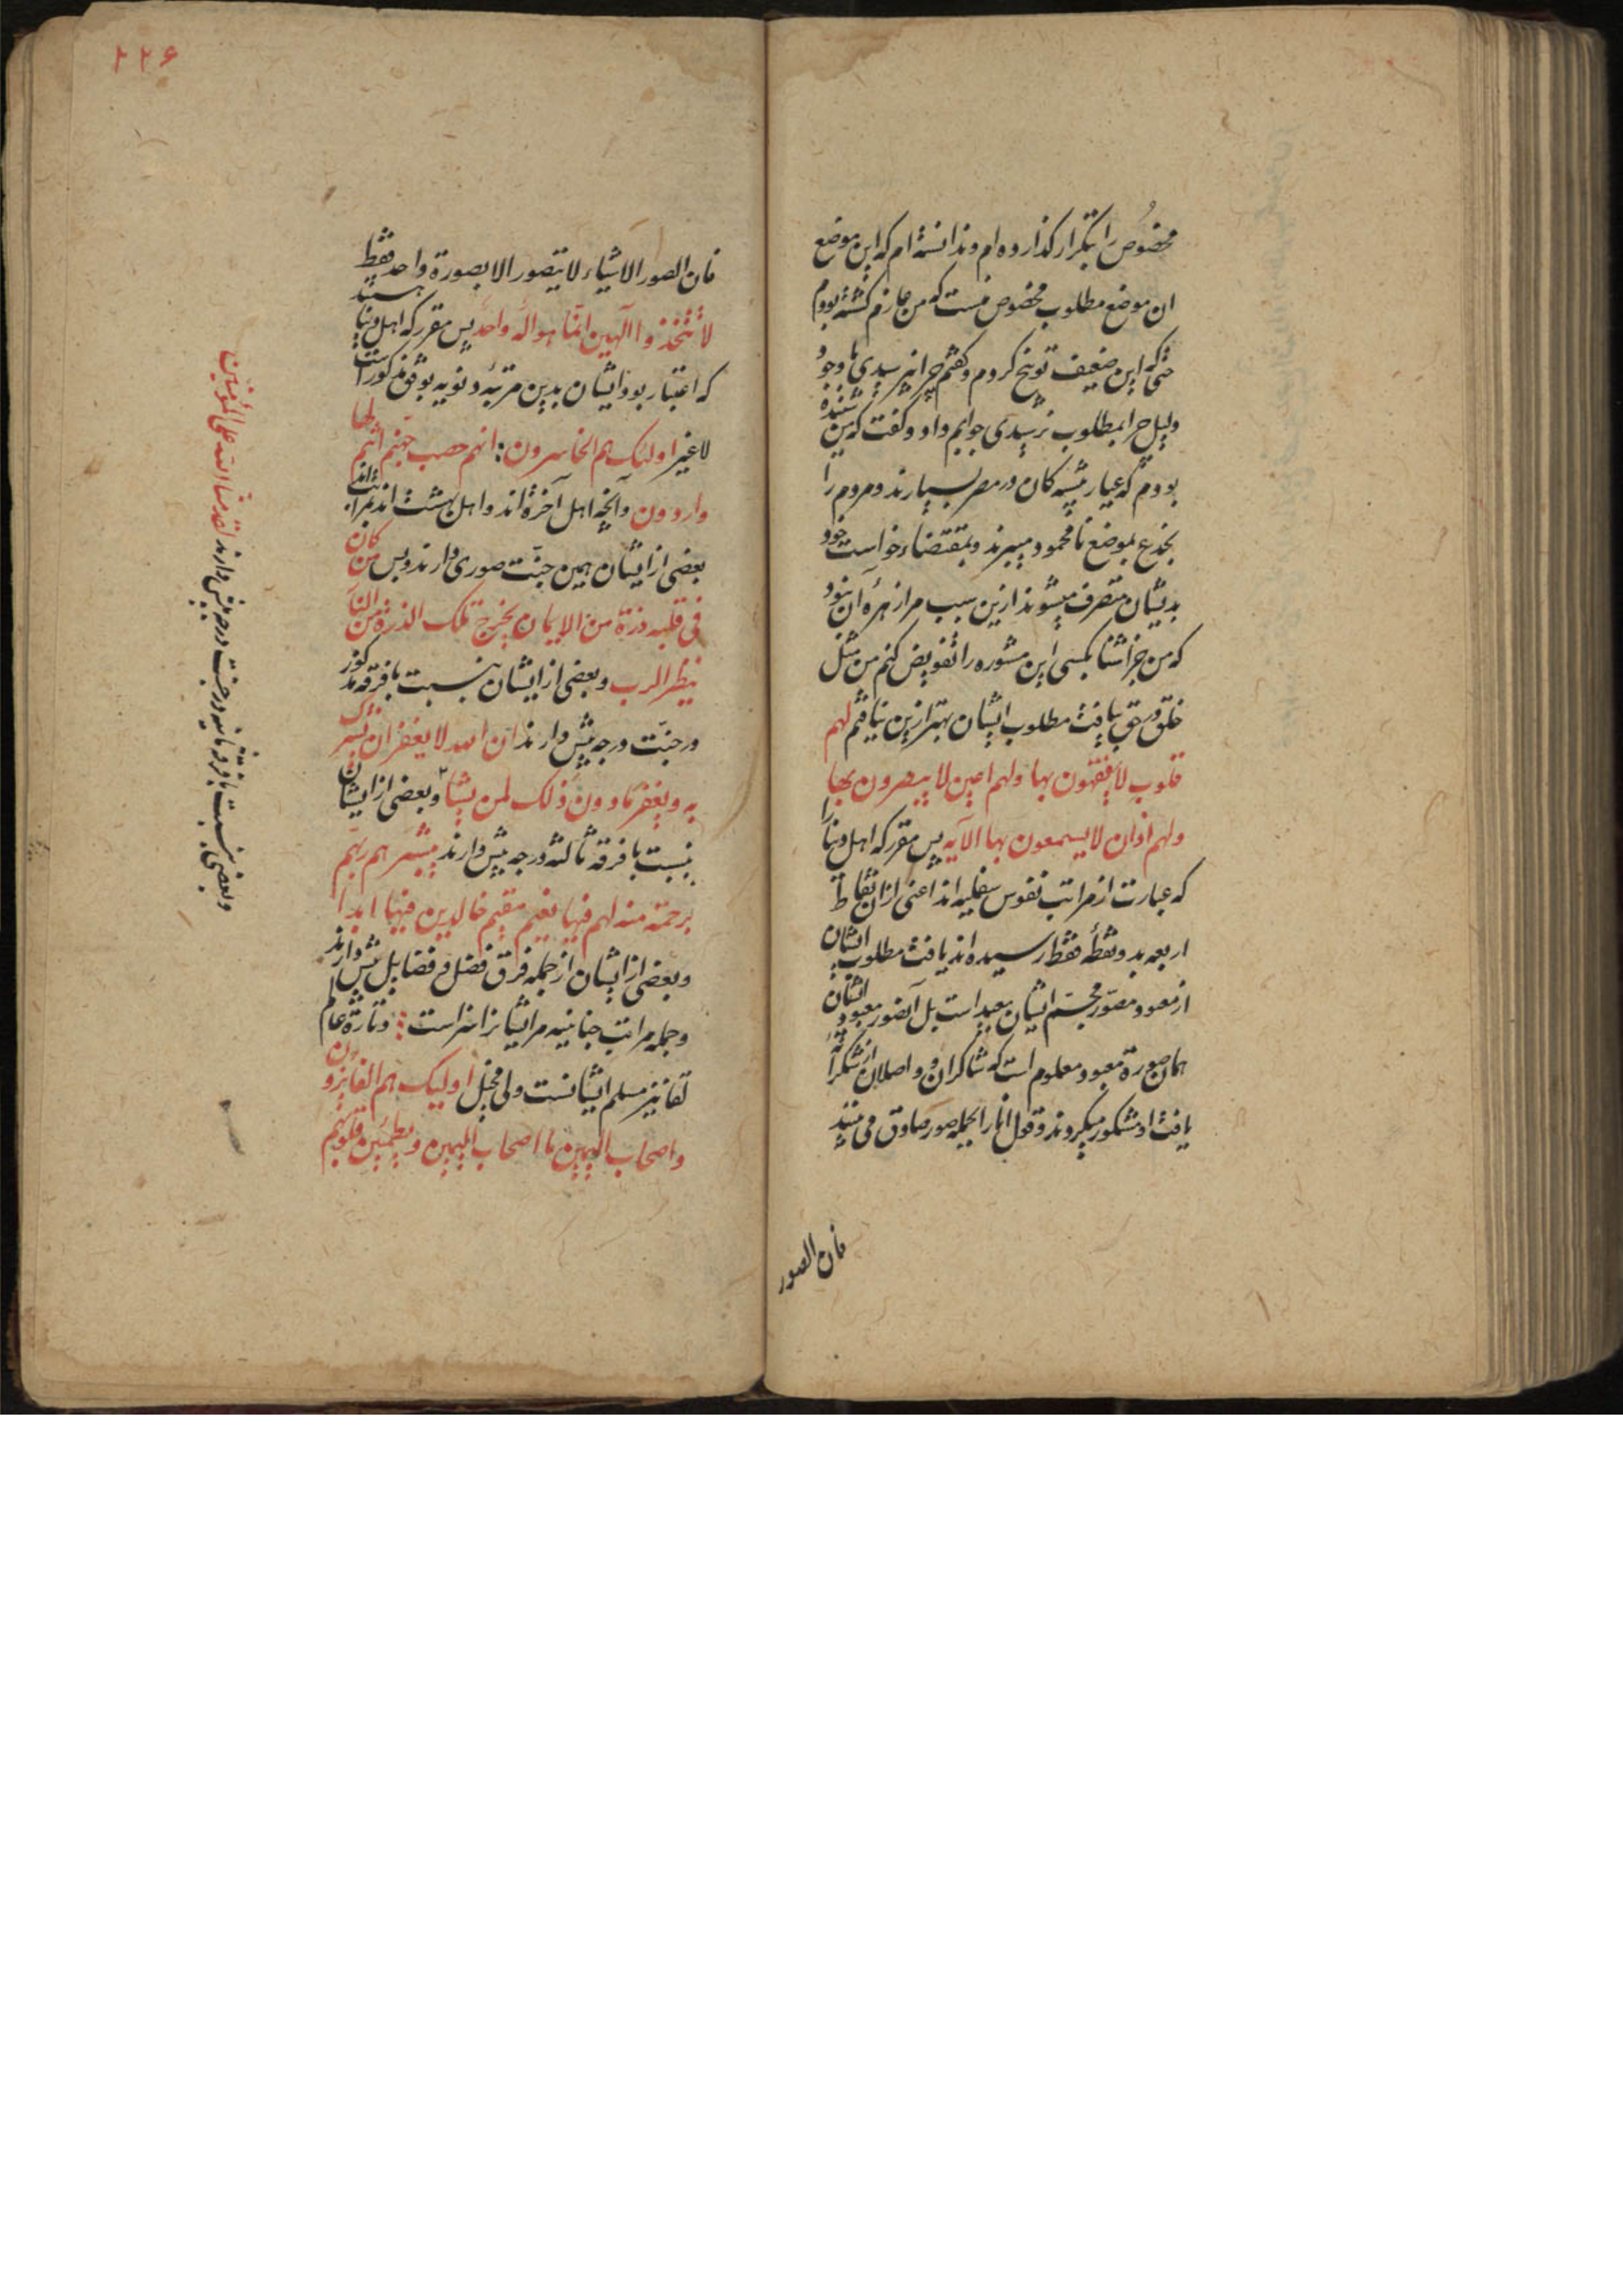 مخصوص را بتکرار کذارده ام وندانسته ام که این موضع
ان موضع مطلوب مخصوص نیست که من عازم کشته بودم
حتی که این ضعیف توبیخ کردم وکفتم چرا نپرسیدی با وجود
دلیل چرا بمطلوب نرسیدی جوابم داد وکفت که من شنیده
بودم که عیار پیشه کان در مصر بسیارند ومردم را
بخدع بموضع نامحمود میبرند وبمقتضاء خواست خود
بدیشان متصرف میشوند ازین سبب مرا زهرهٔ آن نبود
که من جز اشنا بکسی این مشوره را تفویض کنم من مثل
خلق در حق یافت مطلوب ایشان بهتر ازین نیافتم لهم
قلوب لا یفقهون بها ولهم اعین لا یبصرون بها
ولهم اذان لا یسمعون بها الآیه پس مقرر که اهل دنیا را
که عبارت از مراتب نفوس سفلیه اند اعنی ازان نقاط
اربعه بدو نقطهٔ فقط رسیده اند یافت مطلوب ایشان
از معبود مصور مجسم ایشان بعید است بل آنصور معبود ایشان
همان صورة معبود معلوم است که شاکران و واصلان از شکرانه
یافت او مشکور میکردند وقول انار الجمله صور صادق می بینند
فان الصور
۲۲۶
فان الصور الاشیاء لا یتصور الا بصورة واحد فقط
لا تتخذوا آلهین انما هو اله واحد پس مقرر که اهل دنیا هستند
که اعتبار بود ایشان بدین مرتبهٔ دنویه بوفق مذکور است
لا غیر اولئک هم الخاسرون : انهم حصب جهنم انتم لها
واردون وآنچه اهل آخرة اند واهل بهشت اند بمراتب اند
بعضی از ایشان همین جنت صوری دارند وبس من کان
فی قلبه ذرة من الایمان یخرج تلک الذرة من النار
بنظر الرب وبعضی از ایشان بنسبت با فرقه مذکور
در جنت درجه بیش دارند ان الله لا یغفر ان یشرک
به ویغفر ما دون ذلک لمن یشاء وبعضی از ایشان
بنسبت با فرقه ثالثه درجه بیش دارند یبشرهم ربهم
برحمة منه لهم فیها نعیم مقیم خالدین فیها ابدا
وبعضی از ایشان از جمله فرق فضل وفضایل بیش دارند
وجمله مراتب جنانیه مر ایشانرا سزاست : وتارة عام
لقا نیز مسلم ایشانست ولی مجمل اولیک هم الفایزون
واصحاب الیمین ما اصحاب الیمین ویطمئن قلوبهم
وبعضی بنسبت با فرقه ثانیه در جنت درجه بیش دارند لقد منّ الله علی المؤمنین